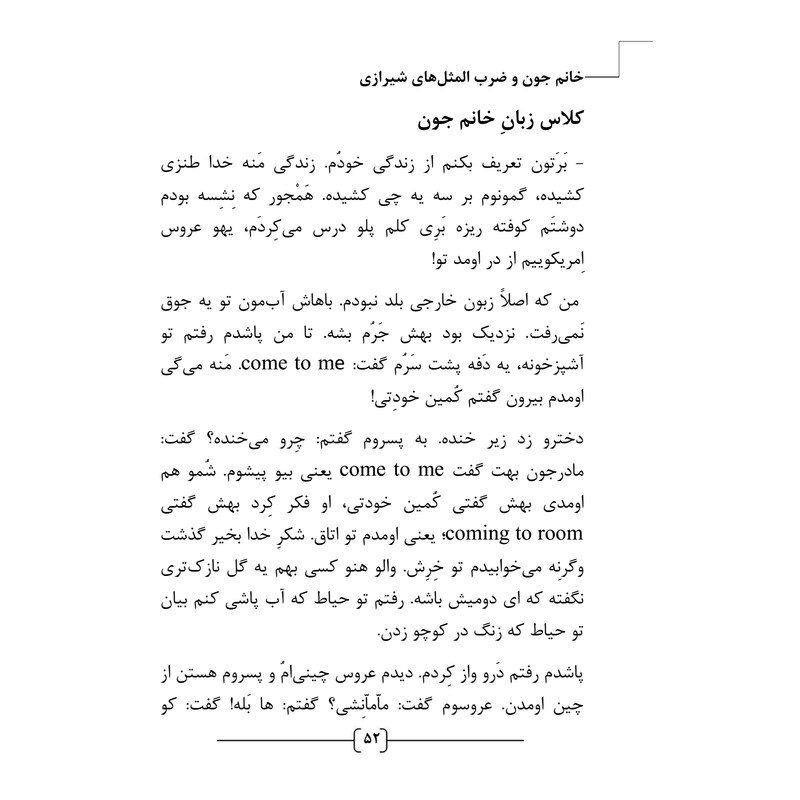 خانم جون و ضرب المثل‌های شیرازی
کلاس زبانِ خانم جون
- بَرَتون تعریف بکنم از زندگی خودُم. زندگی مَنه خدا طنزی
کشیده، گمونوم بر سه یه چی کشیده. هَمْجور که نِشِسه بودم
دوشتَم کوفته ریزه بَرِی کلم پلو درس می‌کِردَم، یهو عروس
اِمریکوییم از در اومد تو!
من که اصلاً زبون خارجی بلد نبودم. باهاش آب‌مون تو یه جوق
نَمی‌رفت. نزدیک بود بهش جَرُم بشه. تا من پاشدم رفتم تو
آشپزخونه، یه دَفه پشت سَرُم گفت: come to me. مَنه می‌گی
اومدم بیرون گفتم کُمین خودِتی!
دخترو زد زیر خنده. به پسروم گفتم: چِرو می‌خنده؟ گفت:
مادرجون بهت گفت come to me یعنی بیو پیشوم. شُمو هم
اومدی بهش گفتی کُمین خودتی، او فکر کِرد بهش گفتی
coming to room؛ یعنی اومدم تو اتاق. شکرِ خدا بخیر گذشت
وگرنِه می‌خوابیدم تو خِرِش. والو هنو کسی بهم یه گل نازک‌تری
نگفته که ای دومیش باشه. رفتم تو حیاط که آب پاشی کنم بیان
تو حیاط که زنگ در کوچو زدن.
پاشدم رفتم دَرو واز کِردم. دیدم عروس چینی‌امُ و پسروم هستن از
چین اومدن. عروسوم گفت: مآمآنِشی؟ گفتم: ها بَله! گفت: کو
۵۲